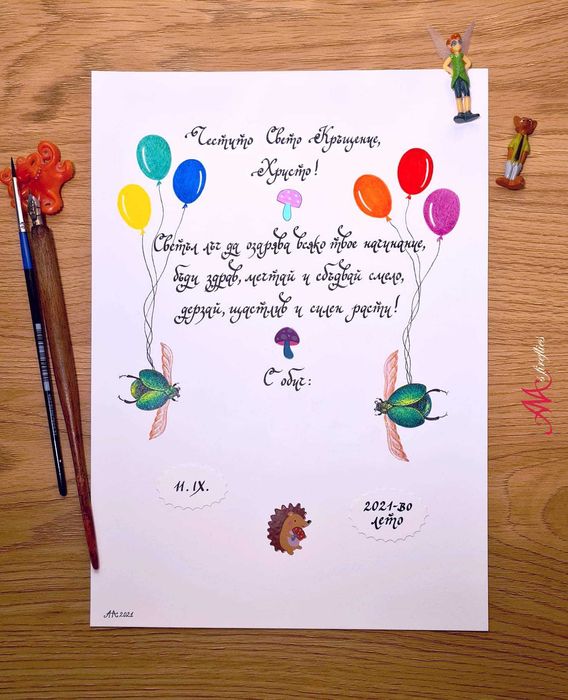 Честито Свето Кръщение,
Христо!
Светъл лъч да озарява всяко твое начинание,
бъди здрав, мечтай и сбъдвай смело,
дерзай, щастлив и силен расти!
С обич:
11. IX.
2021-во
лето
AA 2021
AA fireflies